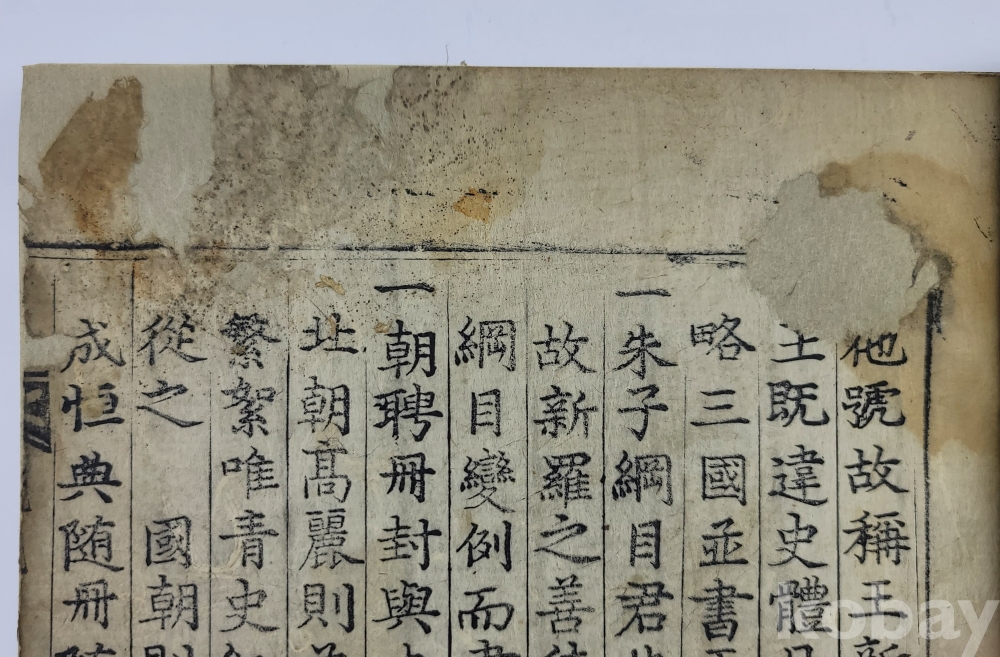 他號故稱王新
王既違史體
略三國並書
一朱子綱目君
故新羅之善
綱目變例而書
一朝聘冊封與
北朝高麗則
繁絮唯青史
從之 國朝則
成恒典随冊随
kobay